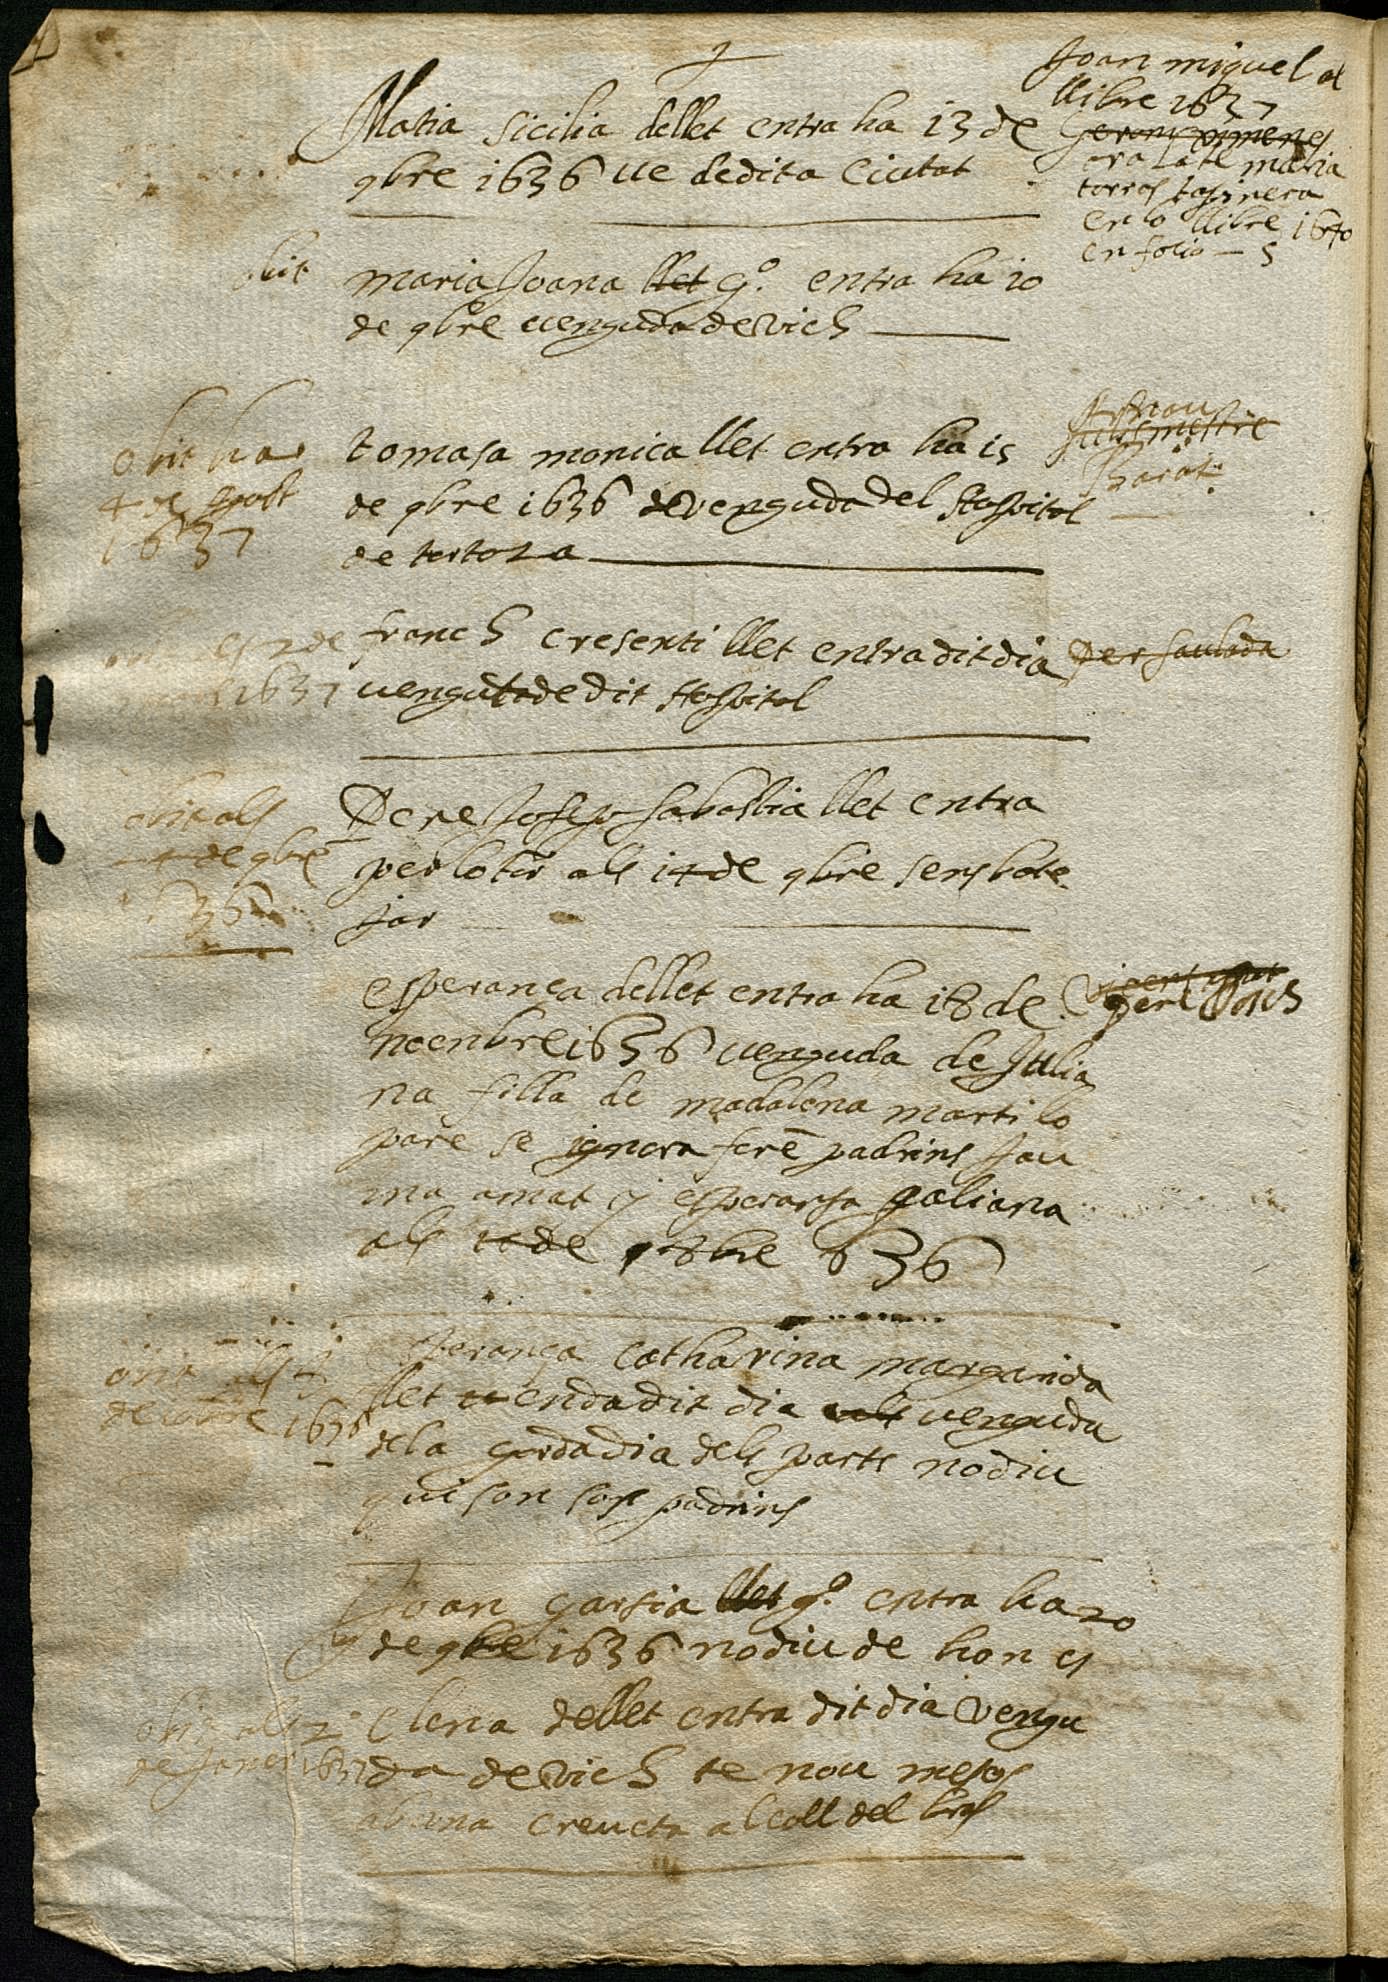 Matia Sicilia dellet entra ha 13 de
9bre 1636 ve de dita Ciutat
Joan miquel al
llibre 1637
Geronj ximenes
ora la te maria
torras tapinera
en lo llibre 1640
en folio — 5
obit
maria Joana llet g.º entra ha 10
de 9bre venguda de Vich
obit ha
4 de agost
1637
tomasa monica llet entra ha 15
de 9bre 1636 de venguda del Hospital
de tortoza
Arnau
silvestre
de
1637
franch cresenti llet entra dit dia
vengut de dit Hospital
Per saulada
obit als
de 9bre
1636
Pere Joseph sabastia llet entra
per lo tor als 14 de 9bre sens bate
jar
esperança dellet entra ha 18 de
noenbre 1636 venguda de Julia
na filla de madalena marti lo
pare se ignora fere padrins Jau
ma amat y esperansa galiana
als de bre 636
Vicent
pere
obit als
de 1636
sperança Catharina margarida
llet venda dit dia venguda
de la gordadia dels parts no diu
qui son sos padrins
Joan garsia llet g.º entra ha 20
de 9bre 1636 no diu de hon es
obit als 2
de Janer 1637
Elena dellet entra dit dia vengu
da de Vich te nou mesos
ab una creueta al coll del bras